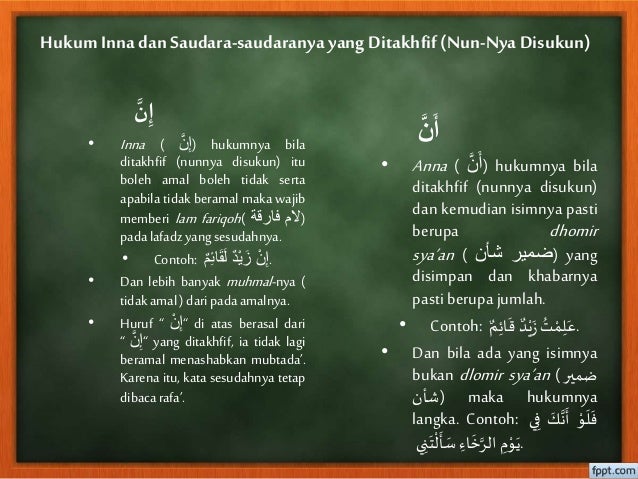 Hukum Inna dan Saudara-saudaranya yang Ditakhfif (Nun-Nya Disukun)
إِنَّ
• Inna ( إِنَّ) hukumnya bila
ditakhfif (nunnya disukun) itu
boleh amal boleh tidak serta
apabila tidak beramal maka wajib
memberi lam fariqoh( لام فارقة)
pada lafadz yang sesudahnya.
• Contoh: إِنْ زَيْدٌ لَقَائِمٌ.
• Dan lebih banyak muhmal-nya (
tidak amal ) dari pada amalnya.
• Huruf “ إِنْ“ di atas berasal dari
“ إِنَّ“ yang ditakhfif, ia tidak lagi
beramal menashabkan mubtada’.
Karena itu, kata sesudahnya tetap
dibaca rafa’.
أَنَّ
• Anna ( أَنَّ) hukumnya bila
ditakhfif (nunnya disukun)
dan kemudian isimnya pasti
berupa dhomir
sya’an ( ضمير شأن) yang
disimpan dan khabarnya
pasti berupa jumlah.
• Contoh: عَلِمْتُ زَيْدٌ قَائِمٌ.
• Dan bila ada yang isimnya
bukan dlomir sya’an ( ضمير
شأن) maka hukumnya
langka. Contoh: فَلَوْ أَنَّكَ فِي
يَوْمِ الرَّخَاءِ سَأَلْتَنِي.
fppt.com